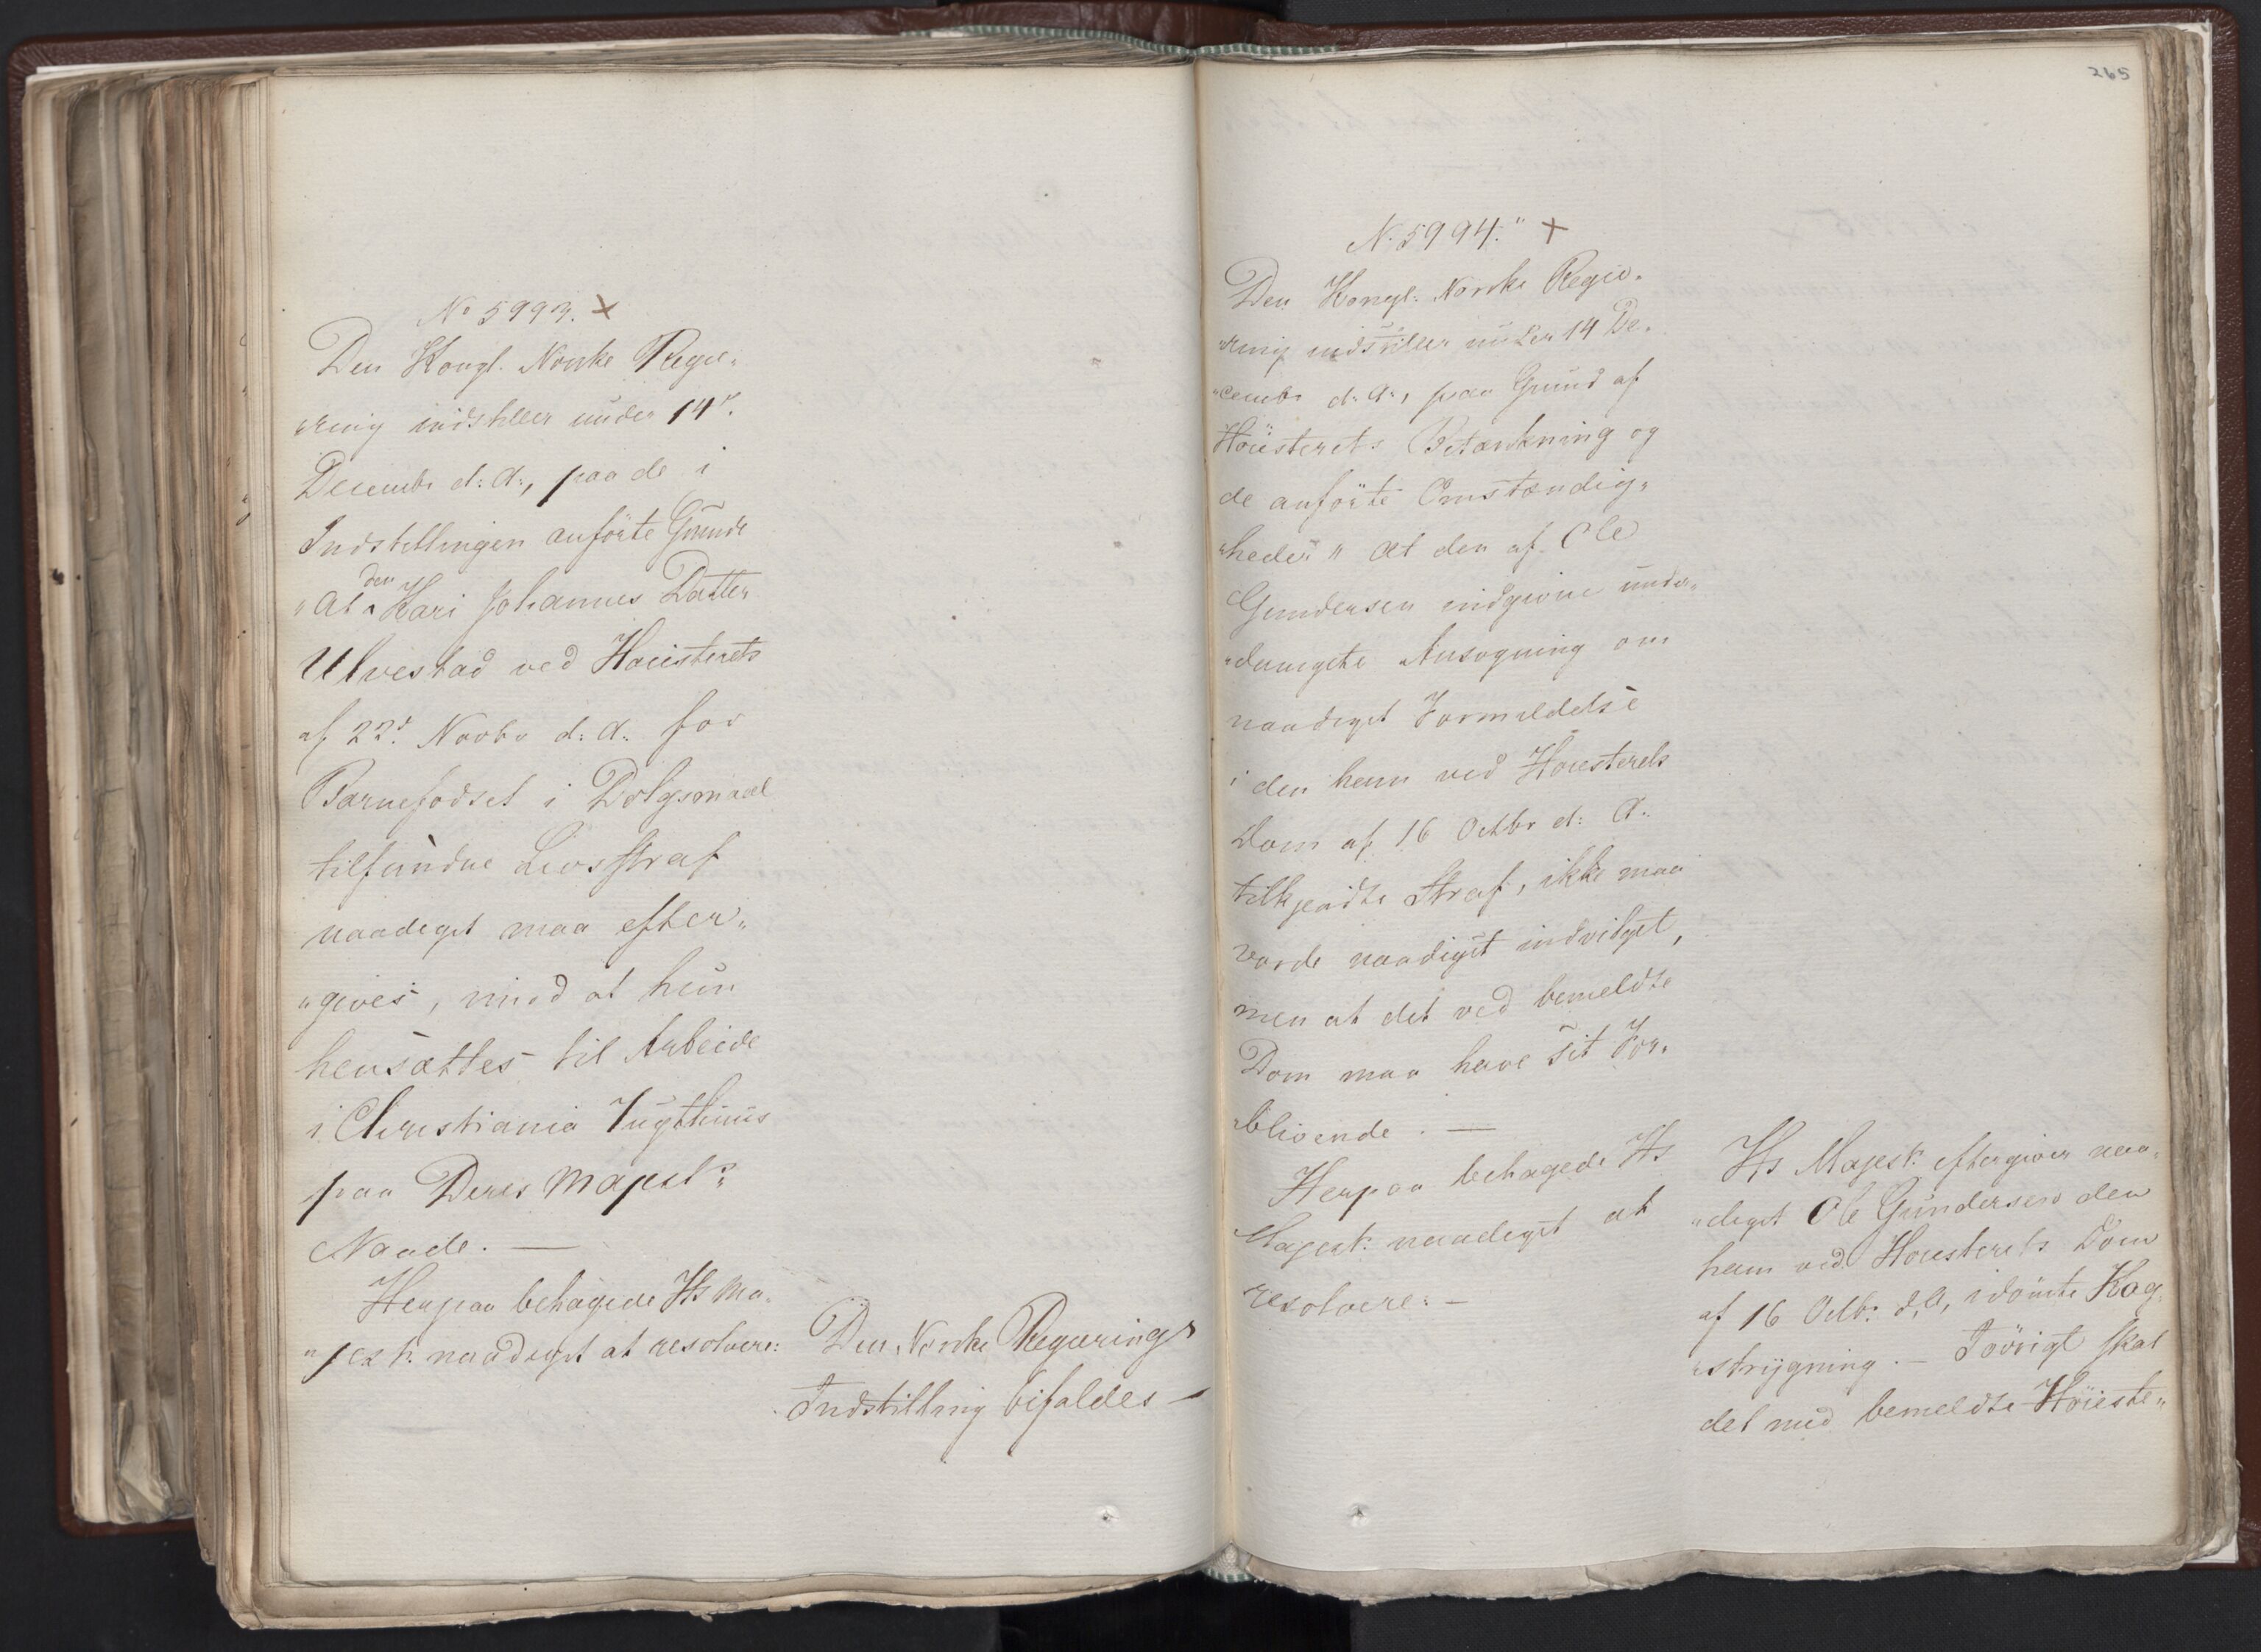 No 5993. X
Den Kongl. Norske Regie„
„ring indstiller under 14de.
Decembr d: A:, paa de i
Indstillingen anførte Grunde
den
„At Kari Johannes Datter
Ulvestad ved Høiesterets
af 22d. Novbr d: A: for
Barnefødsel i Dølgsmaal
tilfundne Livsstraf
naadigst maa efter„
„gives, mod at hun
hensættes til Arbeide
i Christiania Tugthuus
paa Deres Majest:s
Naade. —
Herpaa behagede Hs Ma„
„jest: naadigst at resolvere:
Den Norske Regierings
Indstilling bifaldes —
265
N. 5994." X
Den Kongl: Norske Regie„
„ring indstiller under 14 De„
„cembr d: A:, paa Grund af
Høiesterets Betænkning og
de anførte Omstændig„
„heder " At den af Ole
Gundersen indgivne under„
„danigste Ansøgning om
naadigst Formildelse
i den ham ved Høiesterets
Dom af 16 Octbr d: A:
tilkjendte Straf, ikke maa
vorde naadigst indvilget,
men at det ved bemeldte
Dom maa have sit For„
„blivende. —
Herpaa behagede Hs
Majest: naadigst at
resolvere: —
Hs Majest: eftergiver naa„
„digst Ole Gundersen den
ham ved Høiesterets Dom
af 16 Octbr d. A, idømte Kag„
„strygning. — Iøvrigt skal
det med bemeldte Høieste„